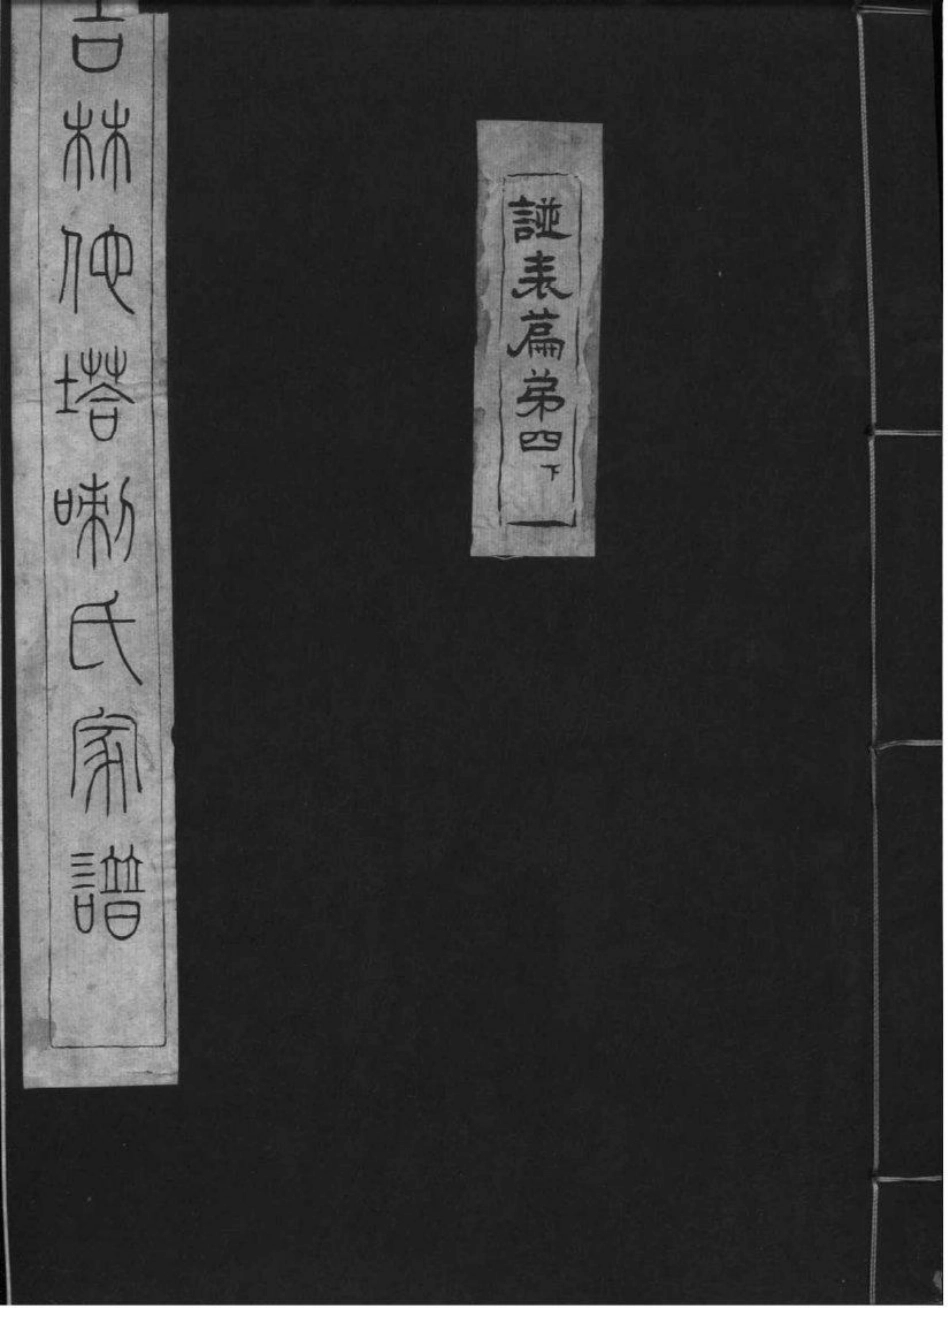 譜表篇弟四下
吉林他塔喇氏家譜